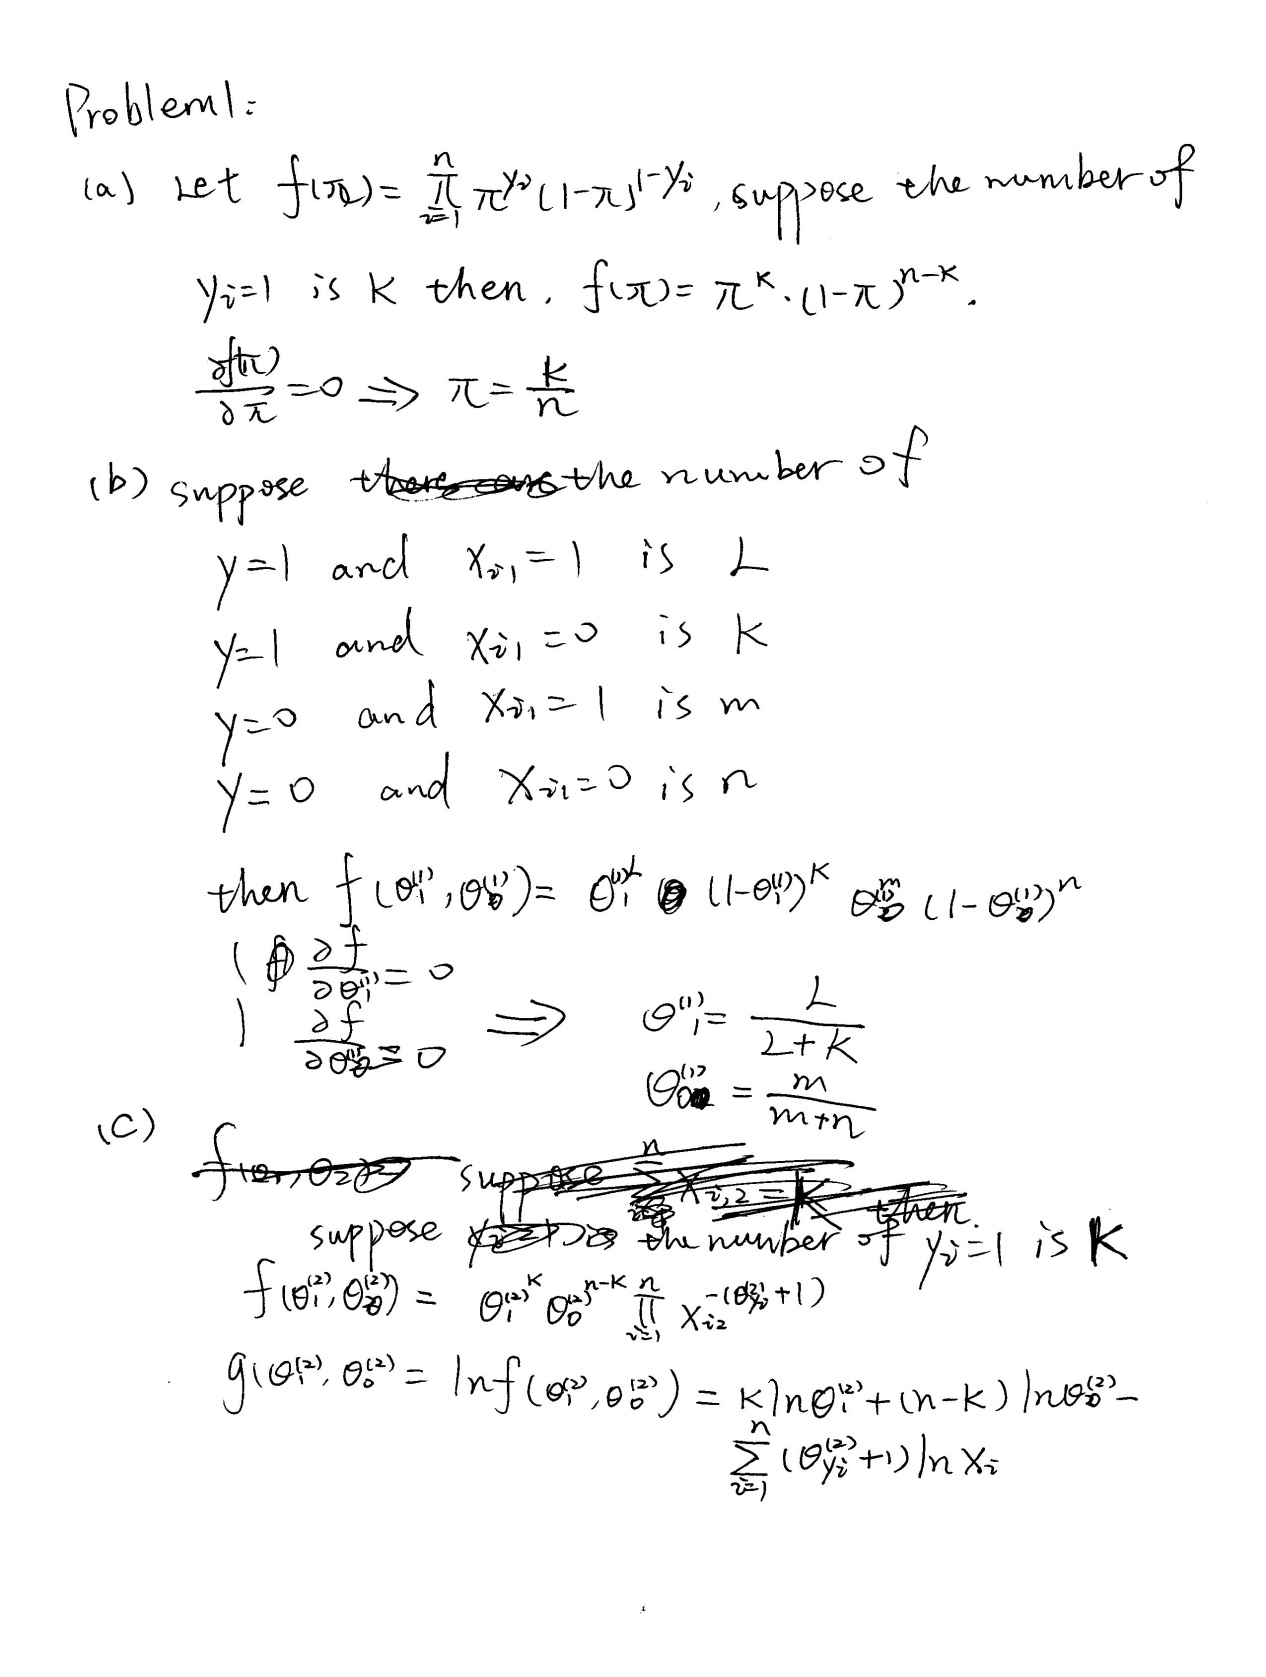 Problem1:
(a) Let f(π) = ∏_{i=1}^{n} π^{y_i} (1-π)^{1-y_i}, suppose the number of
y_i=1 is K then, f(π) = π^K · (1-π)^{n-K}.
∂f(π)/∂π = 0 ⇒ π = K/n
(b) suppose the number of
y=1 and X_{i1} = 1 is L
y=1 and X_{i1} = 0 is K
y=0 and X_{i1} = 1 is m
y=0 and X_{i1} = 0 is n
then f(θ_1^{(1)}, θ_0^{(1)}) = θ_1^{(1)L} (1-θ_1^{(1)})^K θ_0^{(1)m} (1-θ_0^{(1)})^n
∂f/∂θ_1^{(1)} = 0
∂f/∂θ_0^{(1)} = 0 ⇒ θ_1^{(1)} = L/(L+K)
θ_0^{(1)} = m/(m+n)
(C)
suppose the number of y_i=1 is K
f(θ_1^{(2)}, θ_0^{(2)}) = θ_1^{(2)K} θ_0^{(2)n-K} ∏_{i=1}^{n} X_{i2}^{-(θ_{y_i}^{(2)}+1)}
g(θ_1^{(2)}, θ_0^{(2)} = ln f(θ_1^{(2)}, θ_0^{(2)}) = K ln θ_1^{(2)} + (n-K) ln θ_0^{(2)} -
∑_{i=1}^{n} (θ_{y_i}^{(2)}+1) ln X_i